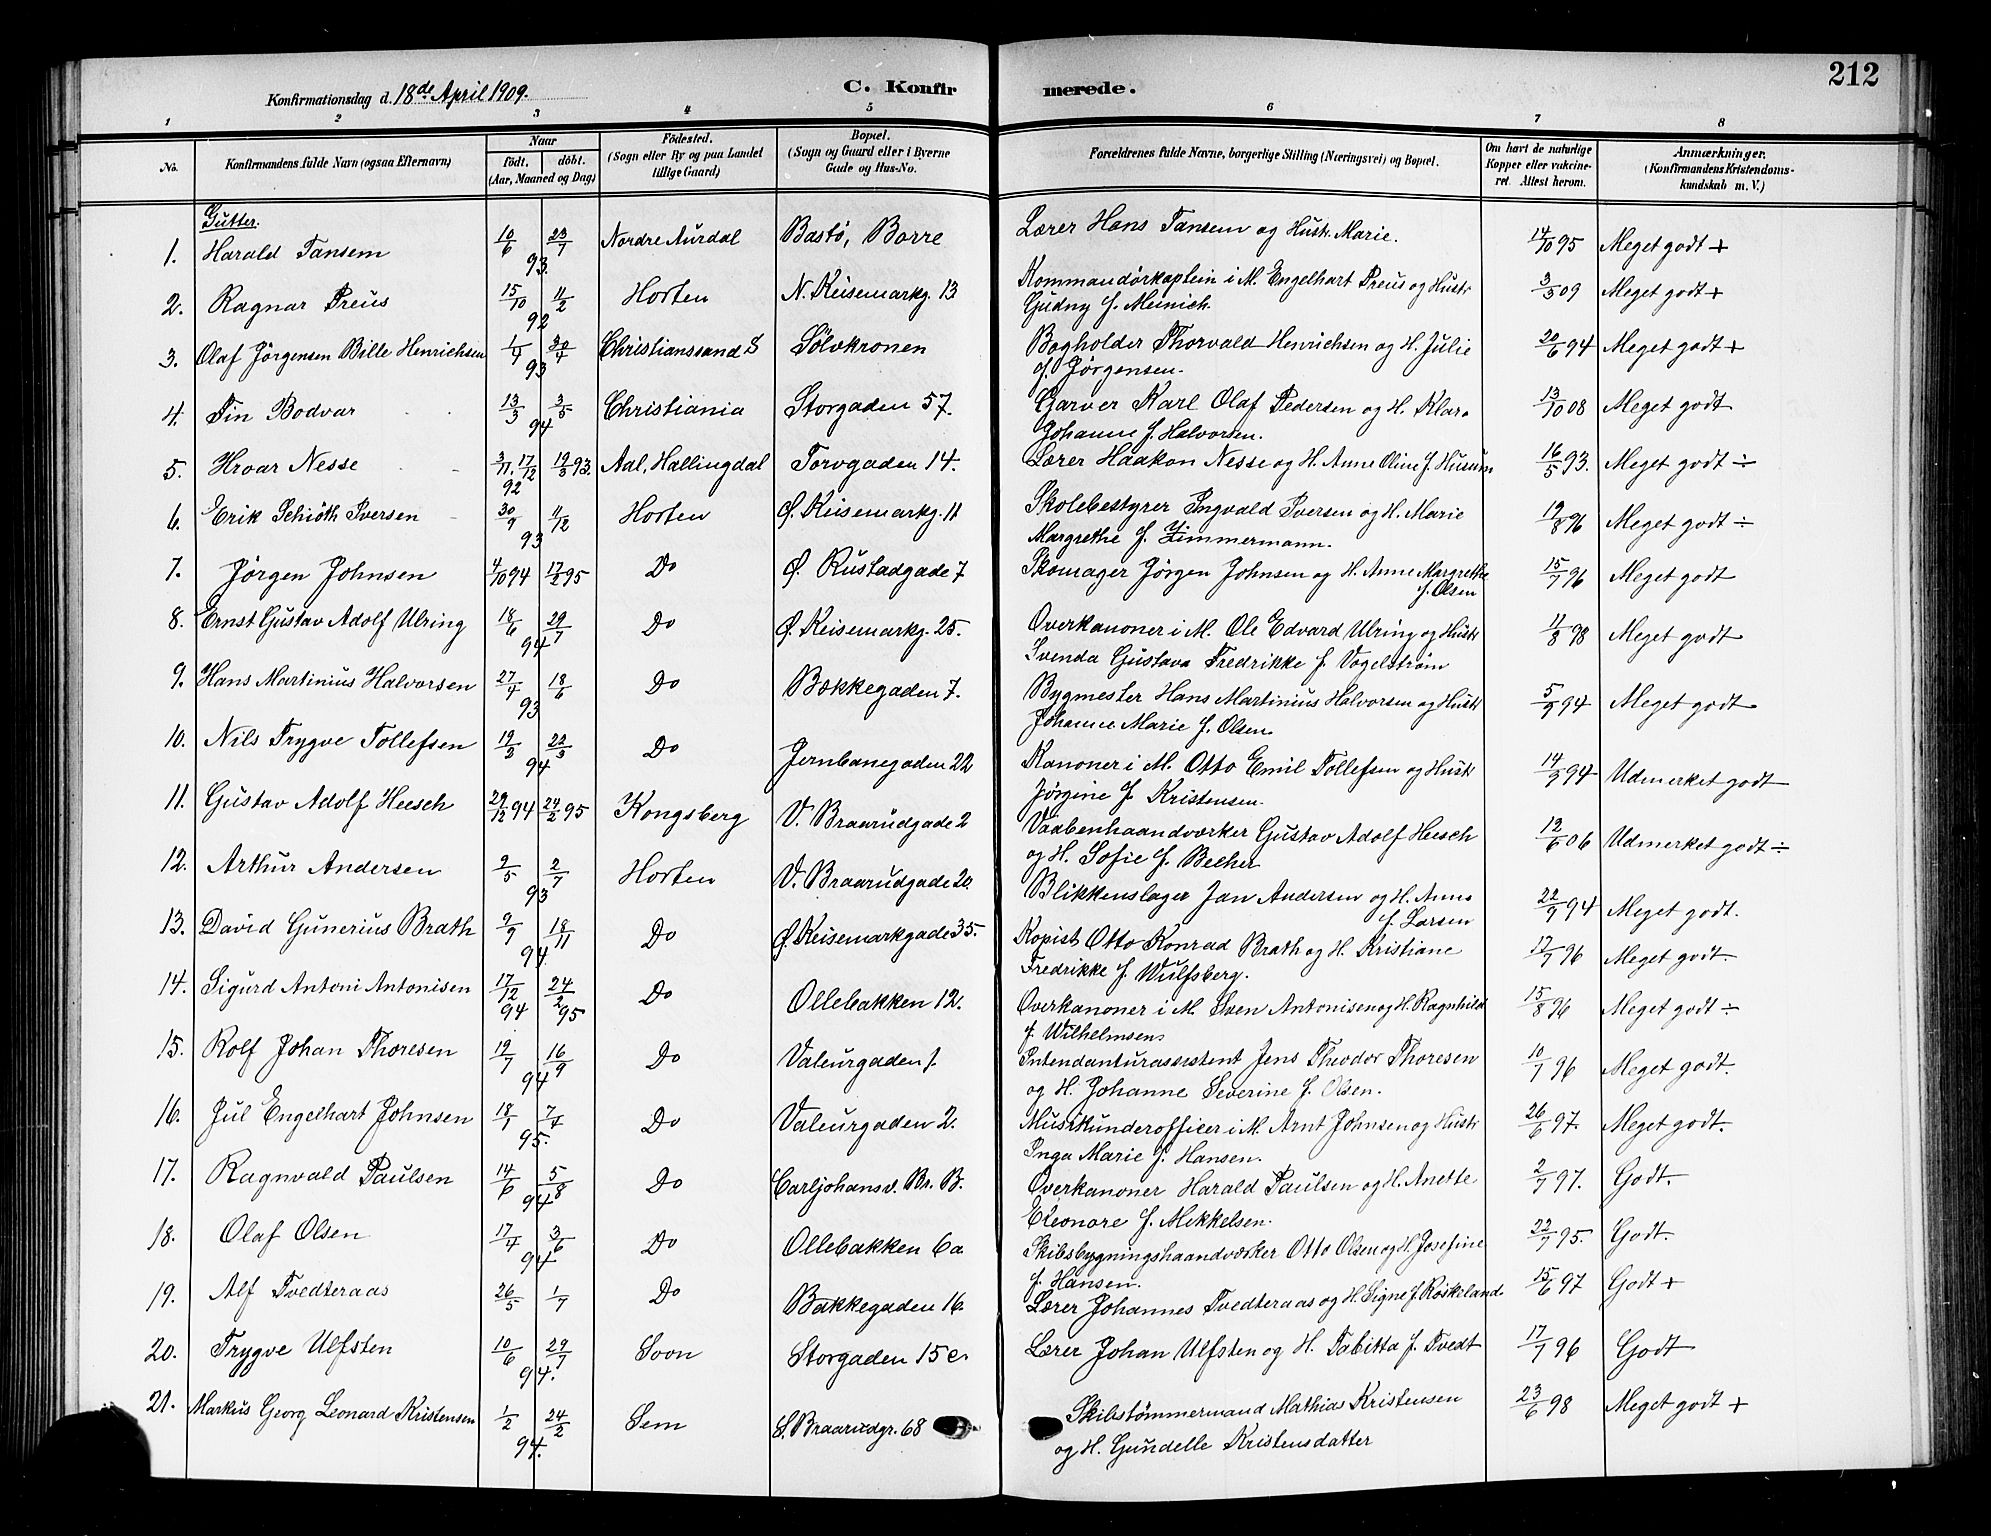 212
Konfirmationsdag d. 18de April 1909.
C. Konfir merede.
1 2 3 4 5 6 7 8
No. Konfirmandens fulde Navn (ogsaa Efternavn) Naar födt. döbt. (Aar, Maaned og Dag) Födested. (Sogn eller By og paa Landet tillige Gaard) Bopæl. (Sogn og Gaard eller i Byerne Gade og Hus-No. Forældrenes fulde Navne, borgerlige Stilling (Næringsvei) og Bopæl. Om havt de naturlige Kopper eller vakcineret. Attest herom. Anmærkninger. (Konfirmandens Kristendomskundskab m. V.)
Gutter.
1. Harald Tansem 10/6 23/7 93 Nordre Aurdal Bastø, Borre Lærer Hans Tansem og Hustr. Marie. 14/10 95 Meget godt +
2. Ragnar Preus 15/10 11/2 92 Horten N. Keisemarkg. 13 Kommandörkaptein i M. Engelhart Preus og Hustr
Gudny f. Meinich. 3/5 09 Meget godt +
3. Olaf Jörgensen Bille Henrichsen 1/4 30/4 93 Christianssand S Sölvkronen Bogholder Thorvald Henrichsen og H. Julie
f. Jörgensen. 20/6 94 Meget godt +
4. Fin Bodvar 13/3 3/5 94 Christiania Storgaden 57. Garver Karl Olaf Pedersen og H. Klara
Johanne f. Halvorsen. 13/10 08 Meget godt
5. Hroar Nesse 3/11. 17/12 92 19/3 93. Aal, Hallingdal Torvgaden 14. Lærer Haakon Nesse og H. Anne Oline f. Husum 16/5 93. Meget godt ÷
6. Erik Schiöth Iversen 30/9 11/12 93 Horten Ø. Keisemarkg. 11 Skolebestyrer Ingvald Iversen og H. Marie
Margrethe f. Zimmermann. 19/8 96 Meget godt ÷
7. Jörgen Johnsen 4/10 94 17/2 95 Do Ø. Rustadgade 7 Skomager Jörgen Johnsen og H. Anne Margrethe
f. Olsen 15/7 96 Meget godt
8. Ernst Gustav Adolf Ulring 18/6 29/7 94 Do Ø. Keisemarkg. 25. Overkanoner i M. Ole Edvard Ulring og Hustr
Svenda Gustava Fredrikke f. Vogelström 11/8 98 Meget godt
9. Hans Martinius Halvorsen 27/4 18/6 93 Do Bækkegaden 7. Bygmester Hans Martinius Halvorsen og Hustr
Johanne Marie f. Olsen. 5/9 94 Meget godt
10. Nils Trygve Tollefsen 19/3 22/3 94 Do Jernbanegaden 22 Kanoner i M. Otto Emil Tollefsen og Hustr
Jörgine f. Kristensen. 14/9 94 Udmerket godt
11. Gustav Adolf Heesch 29/12 94 24/2 95 Kongsberg V. Braarudgade 2 Vaabenhaandværker Gustav Adolf Heesch
og H. Sofie f. Becher 12/6 06 Udmerket godt ÷
12. Arthur Andersen 9/5 2/7 93 Horten V. Braarudgade 20. Blikkenslager Jan Andersen og H. Anna
f. Larsen 22/9 94 Meget godt.
13. David Gunerius Brath 9/9 18/11 94 Do Ø. Keisemarkgade 35. Kopist Otto Konrad Brath og H. Kristiane
Fredrikke f. Wulfsberg. 17/7 96 Meget godt.
14. Sigurd Antoni Antonisen 17/12 94 24/2 95 Do Ollebakken 12. Overkanoner i M. Sven Antonisen og H. Ragnhild
f. Wilhelmsen 15/8 96 Meget godt ÷
15. Rolf Johan Thoresen 19/7 16/9 94 Do Valeurgaden 1. Intendanturassistent Jens Theodor Thoresen
og H. Johanne Severine f. Olsen. 10/7 96 Meget godt.
16. Jul Engelhart Johnsen 18/1 7/4 95. Do Valeurgaden 2. Musikunderofficer i M. Arnt Johnsen og Hustr
Inga Marie f. Hansen. 26/6 97. Meget godt.
17. Ragnvald Paulsen 14/6 5/8 94 Do Carljohansv. Br. B. Overkanoner Harald Paulsen og H. Anette
Eleonore f. Mikkelsen. 2/7 97. Godt.
18. Olaf Olsen 17/4 3/6 94 Do Ollebakken 6a Skibsbygningshaandværker Otto Olsen og H. Josefine
f. Hansen. 22/7 95. Godt.
19. Alf Tvedteraas 26/5 1/7 Do Bakkegaden 16. Lærer Johannes Tvedteraas og H. Signe f. Röskeland 15/6 97 Godt +
20. Trygve Ulfsten 10/6 29/7 94. Soon Storgaden 15c. Lærer Johan Ulfsten og H. Tabitta f. Tvedt 17/7 96 Godt
21. Markus Georg Leonard Kristensen 1/2 24/2 94. Sem S. Braarudgr. 68 Skibstömmermand Mathias Kristensen
og H. Gundelle Kristensdatter 23/6 98 Meget godt +